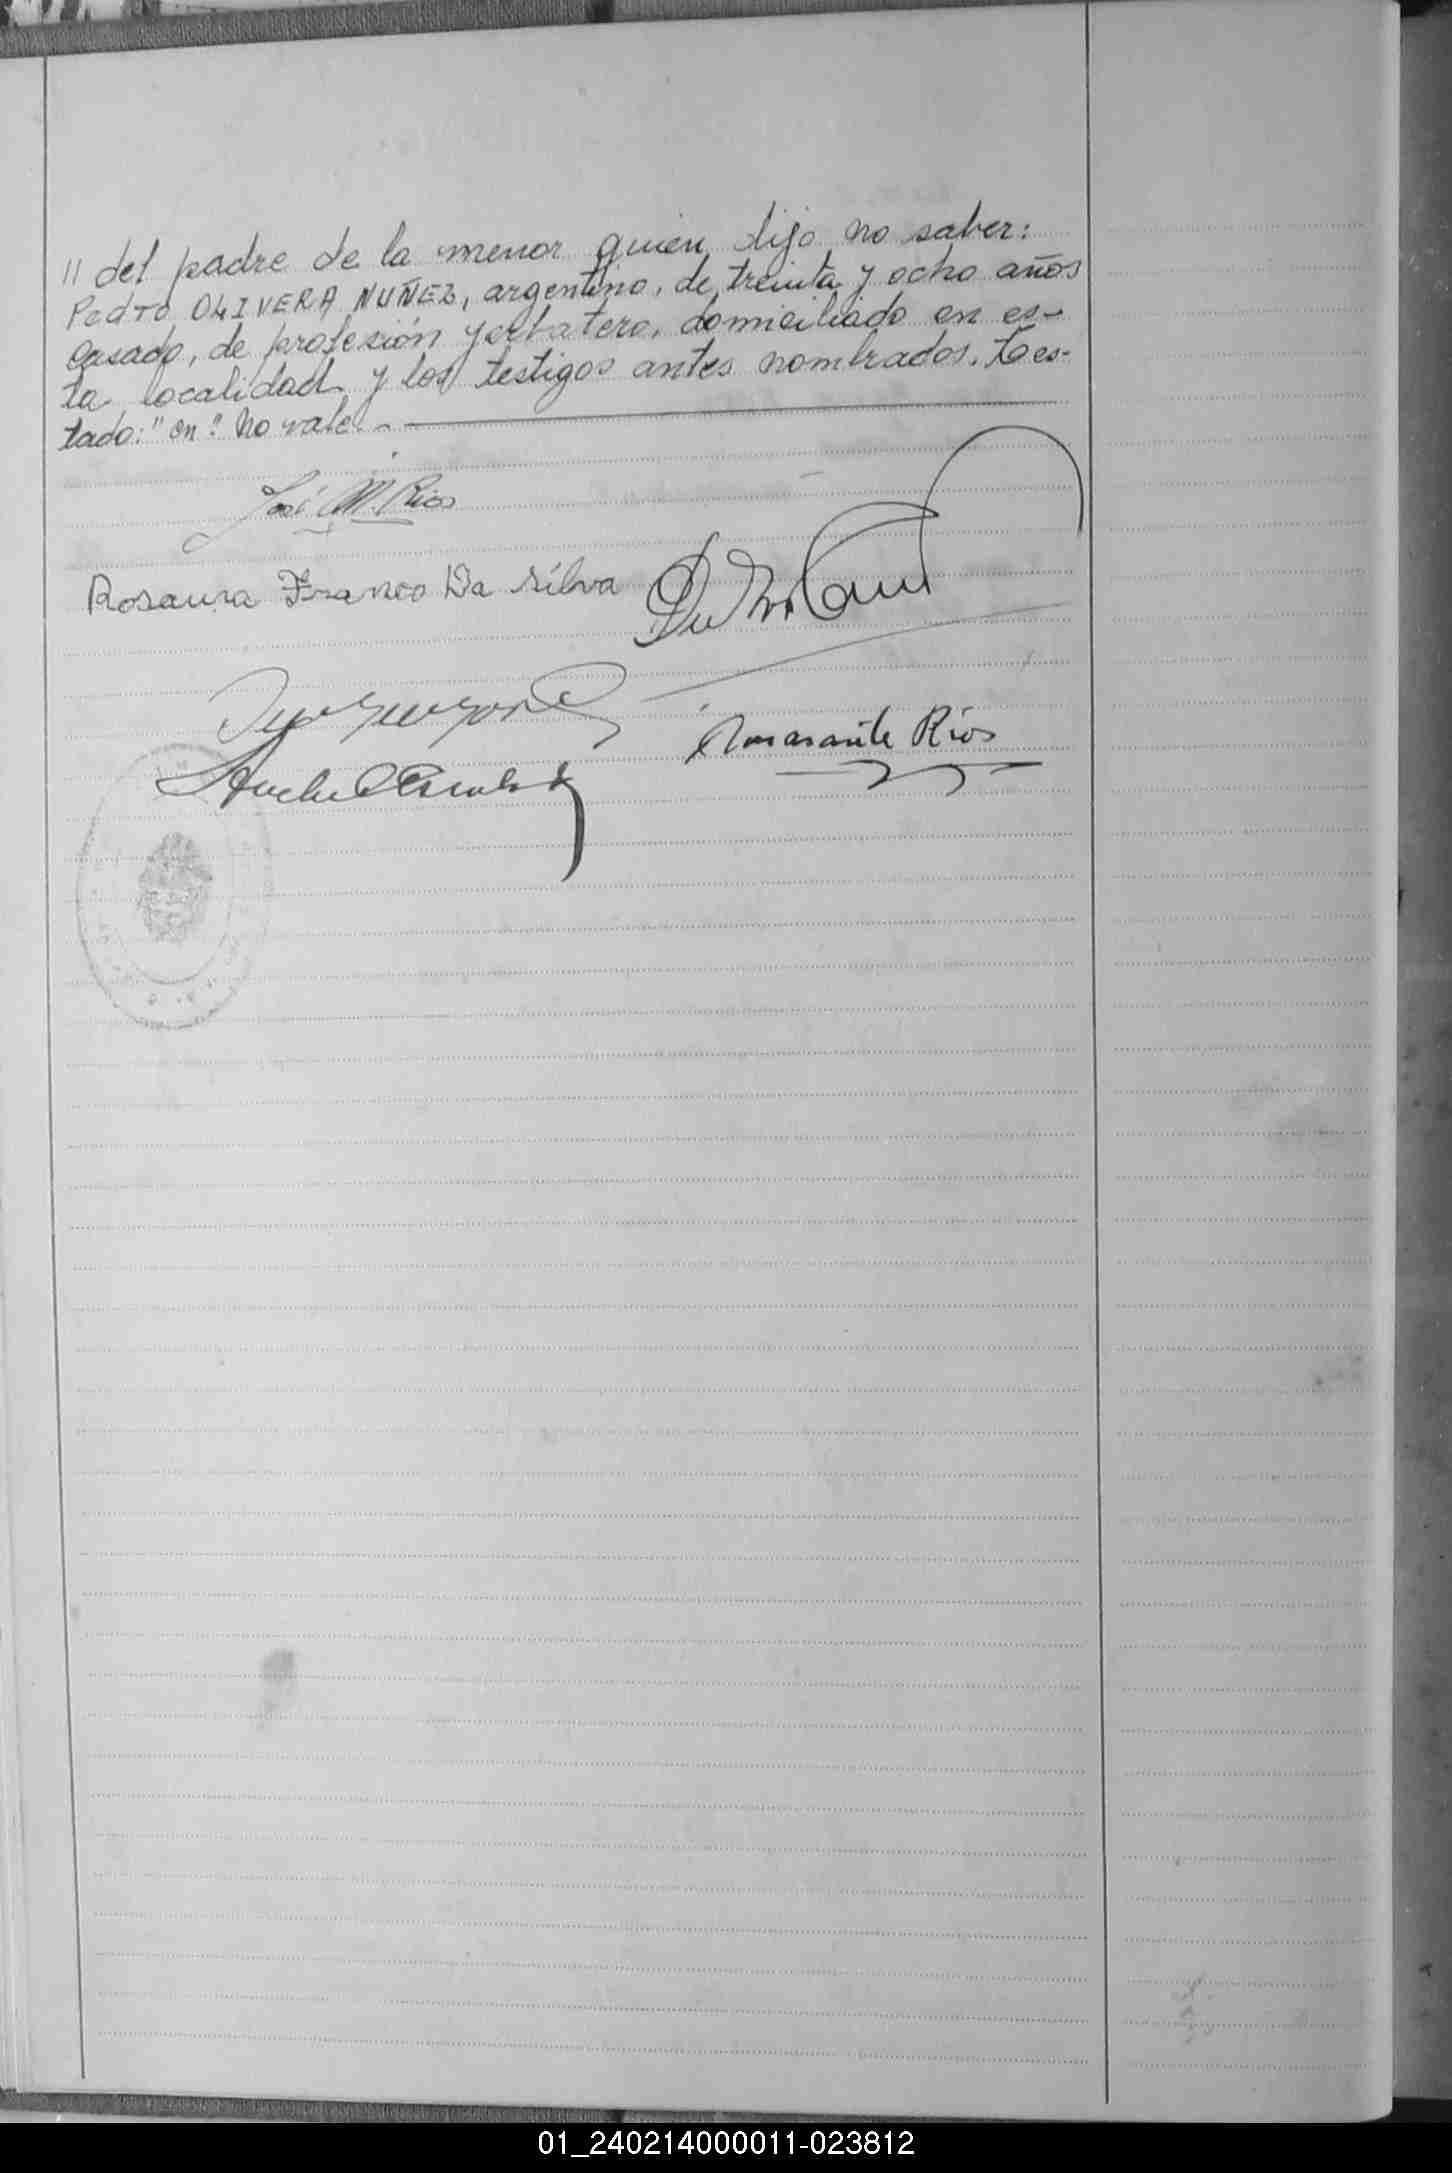 " del padre de la menor quien dijo no saber:
Pedro OLIVERA NUÑEZ, argentino, de treinta y ocho años
casado, de profesión yerbatero, domiciliado en es-
ta localidad y los testigos antes nombrados. Tes-
tado: "en": No vale. -
José M. Rios
Rosaura Franco Da Silva
Amarante Ríos
01_240214000011-023812